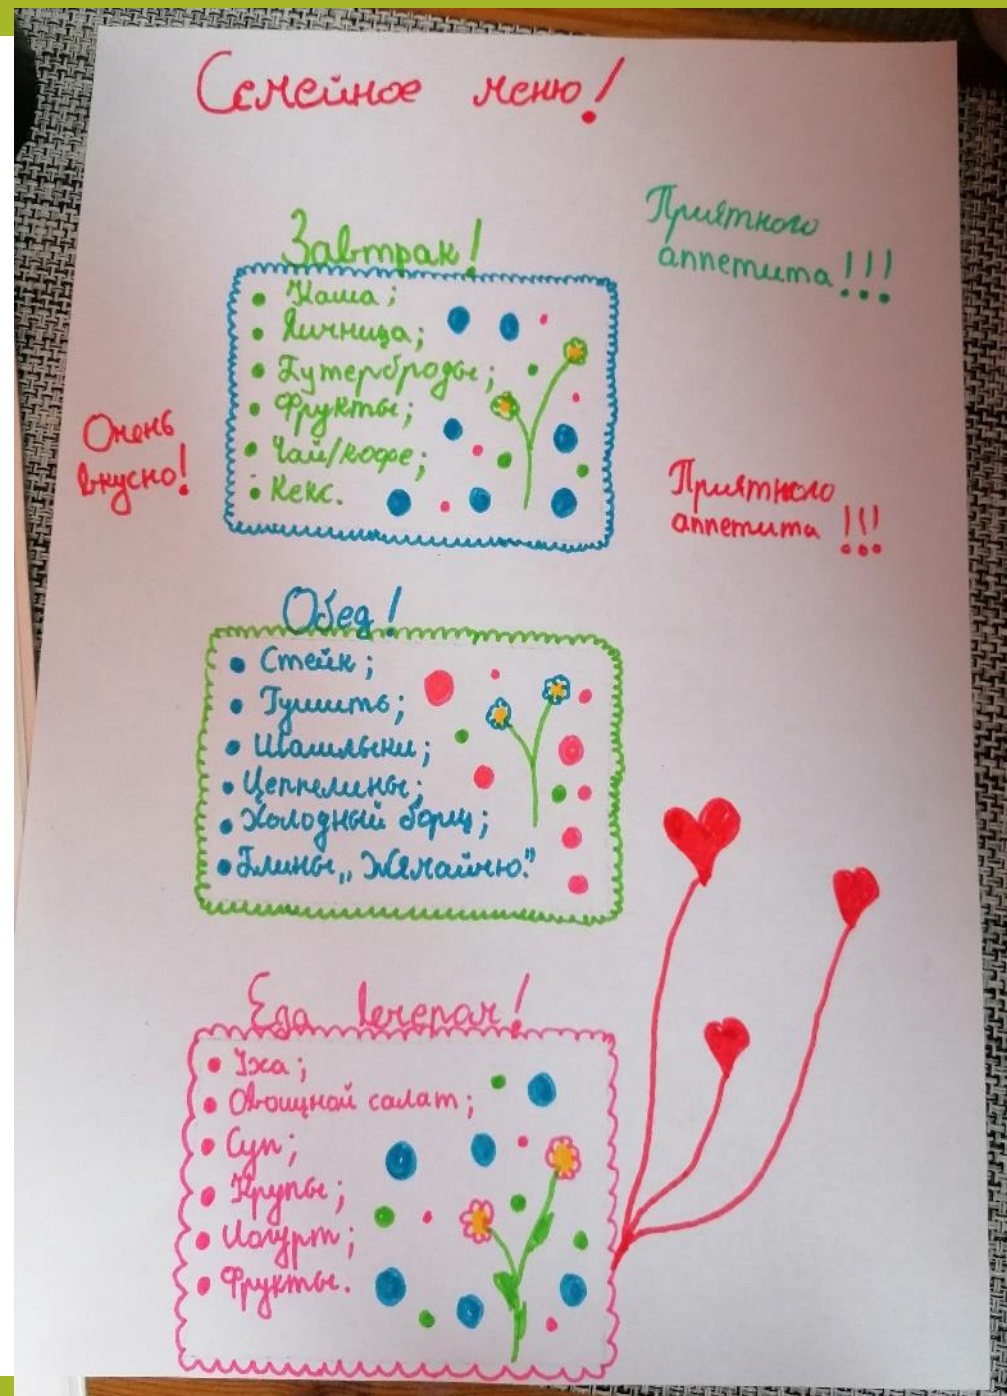 Семейное меню!
Приятного
аппетита!!!
Завтрак!
• Каша;
• Яичница;
• Бутерброды;
• Фрукты;
• Чай/кофе;
• Кекс.
Очень
вкусно!
Приятного
аппетита!!!
Обед!
• Стейк;
• Тушить;
• Шашлыки;
• Цеппелины;
• Холодный борщ;
• Блины „Жямайчю."
Еда вечером!
• Уха;
• Овощной салат;
• Суп;
• Крупы;
• Йогурт;
• Фрукты.